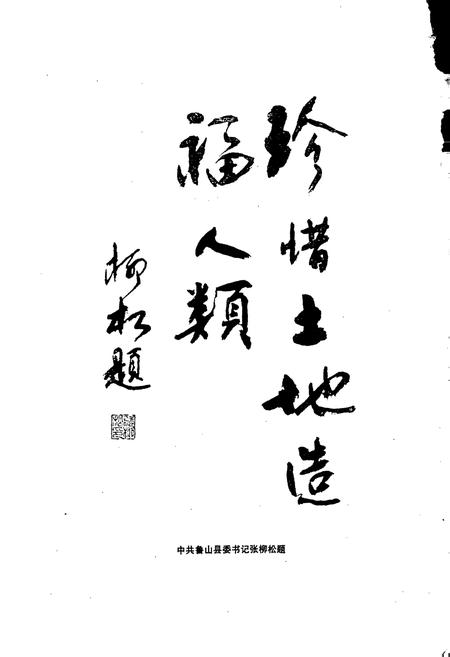 珍惜土地造
福人類
柳松題
中共鲁山县委书记张柳松题